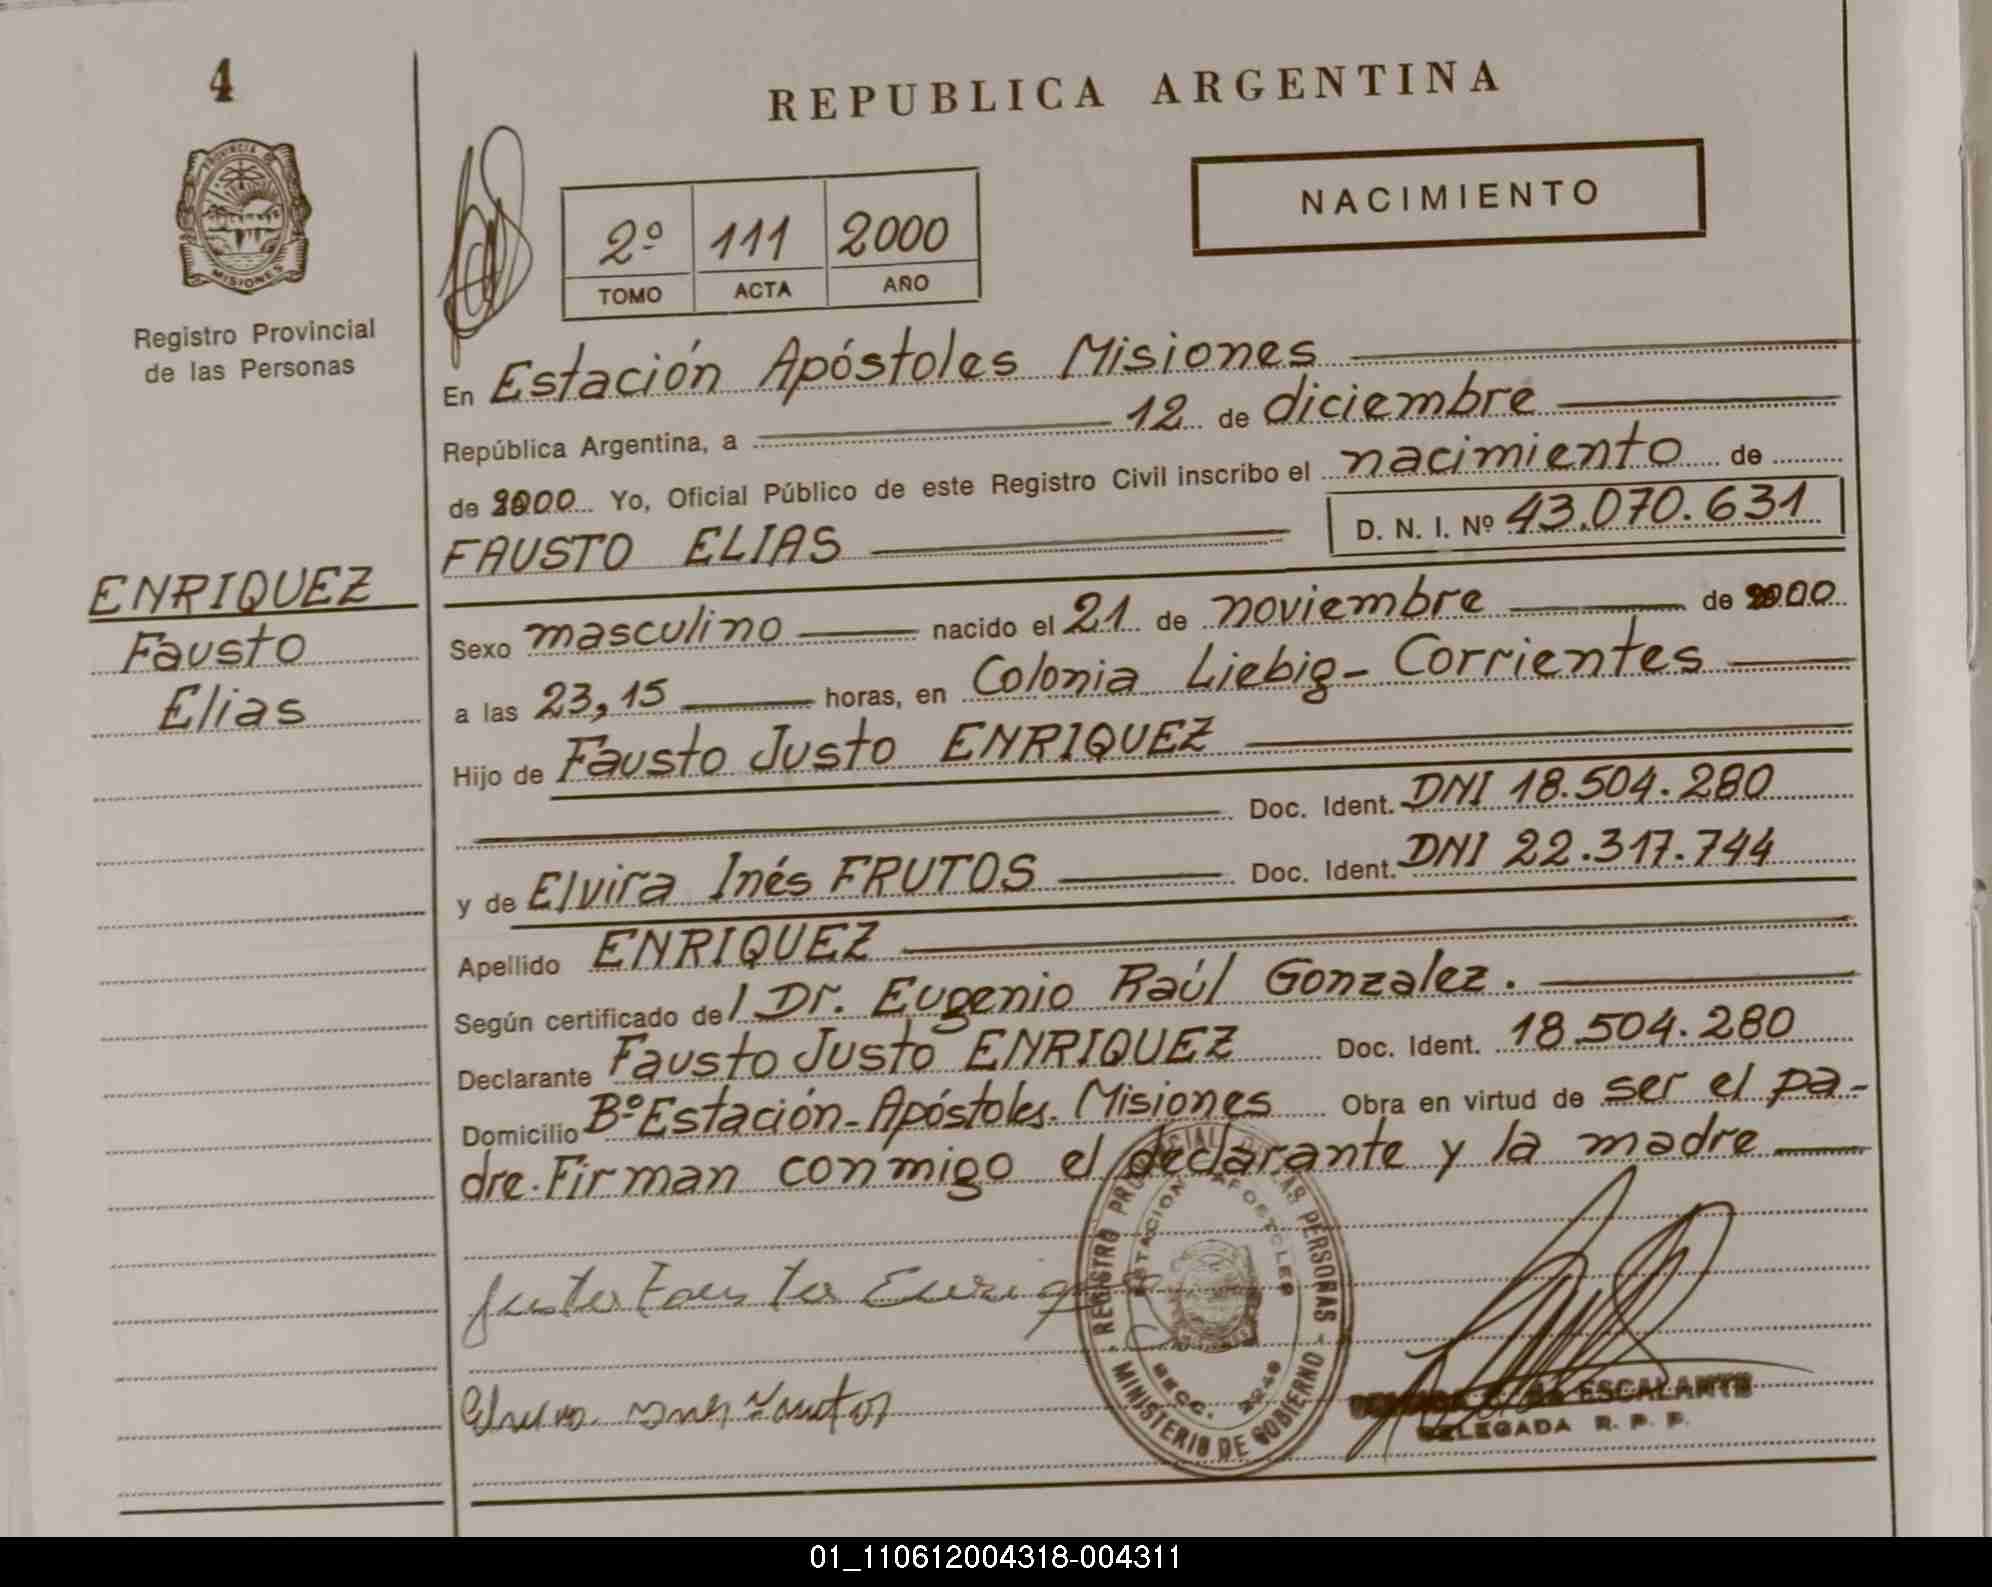 4
REPUBLICA ARGENTINA
PROVINCIA DE
MISIONES
Registro Provincial
de las Personas
2º 111 2000
TOMO ACTA AÑO
NACIMIENTO
En Estación Apóstoles Misiones
República Argentina, a 12 de diciembre
de 2000 Yo, Oficial Público de este Registro Civil inscribo el nacimiento de
FAUSTO ELIAS D. N. I. Nº 43.070.631
ENRIQUEZ
Fausto
Elias
Sexo masculino nacido el 21 de noviembre de 2000
a las 23,15 horas, en Colonia Liebig - Corrientes
Hijo de Fausto Justo ENRIQUEZ
Doc. Ident. DNI 18.504.280
y de Elvira Inés FRUTOS Doc. Ident. DNI 22.317.744
Apellido ENRIQUEZ
Según certificado del Dr. Eugenio Raúl Gonzalez.
Declarante Fausto Justo ENRIQUEZ Doc. Ident. 18.504.280
Domicilio Bº Estación - Apóstoles. Misiones Obra en virtud de ser el pa-
dre. Firman conmigo el declarante y la madre
REGISTRO PROVINCIAL DE LAS PERSONAS -
ESTACION APOSTOLES
SECC. 2248
MINISTERIO DE GOBIERNO
ESCALANTE
DELEGADA R. P. P.
01_110612004318-004311